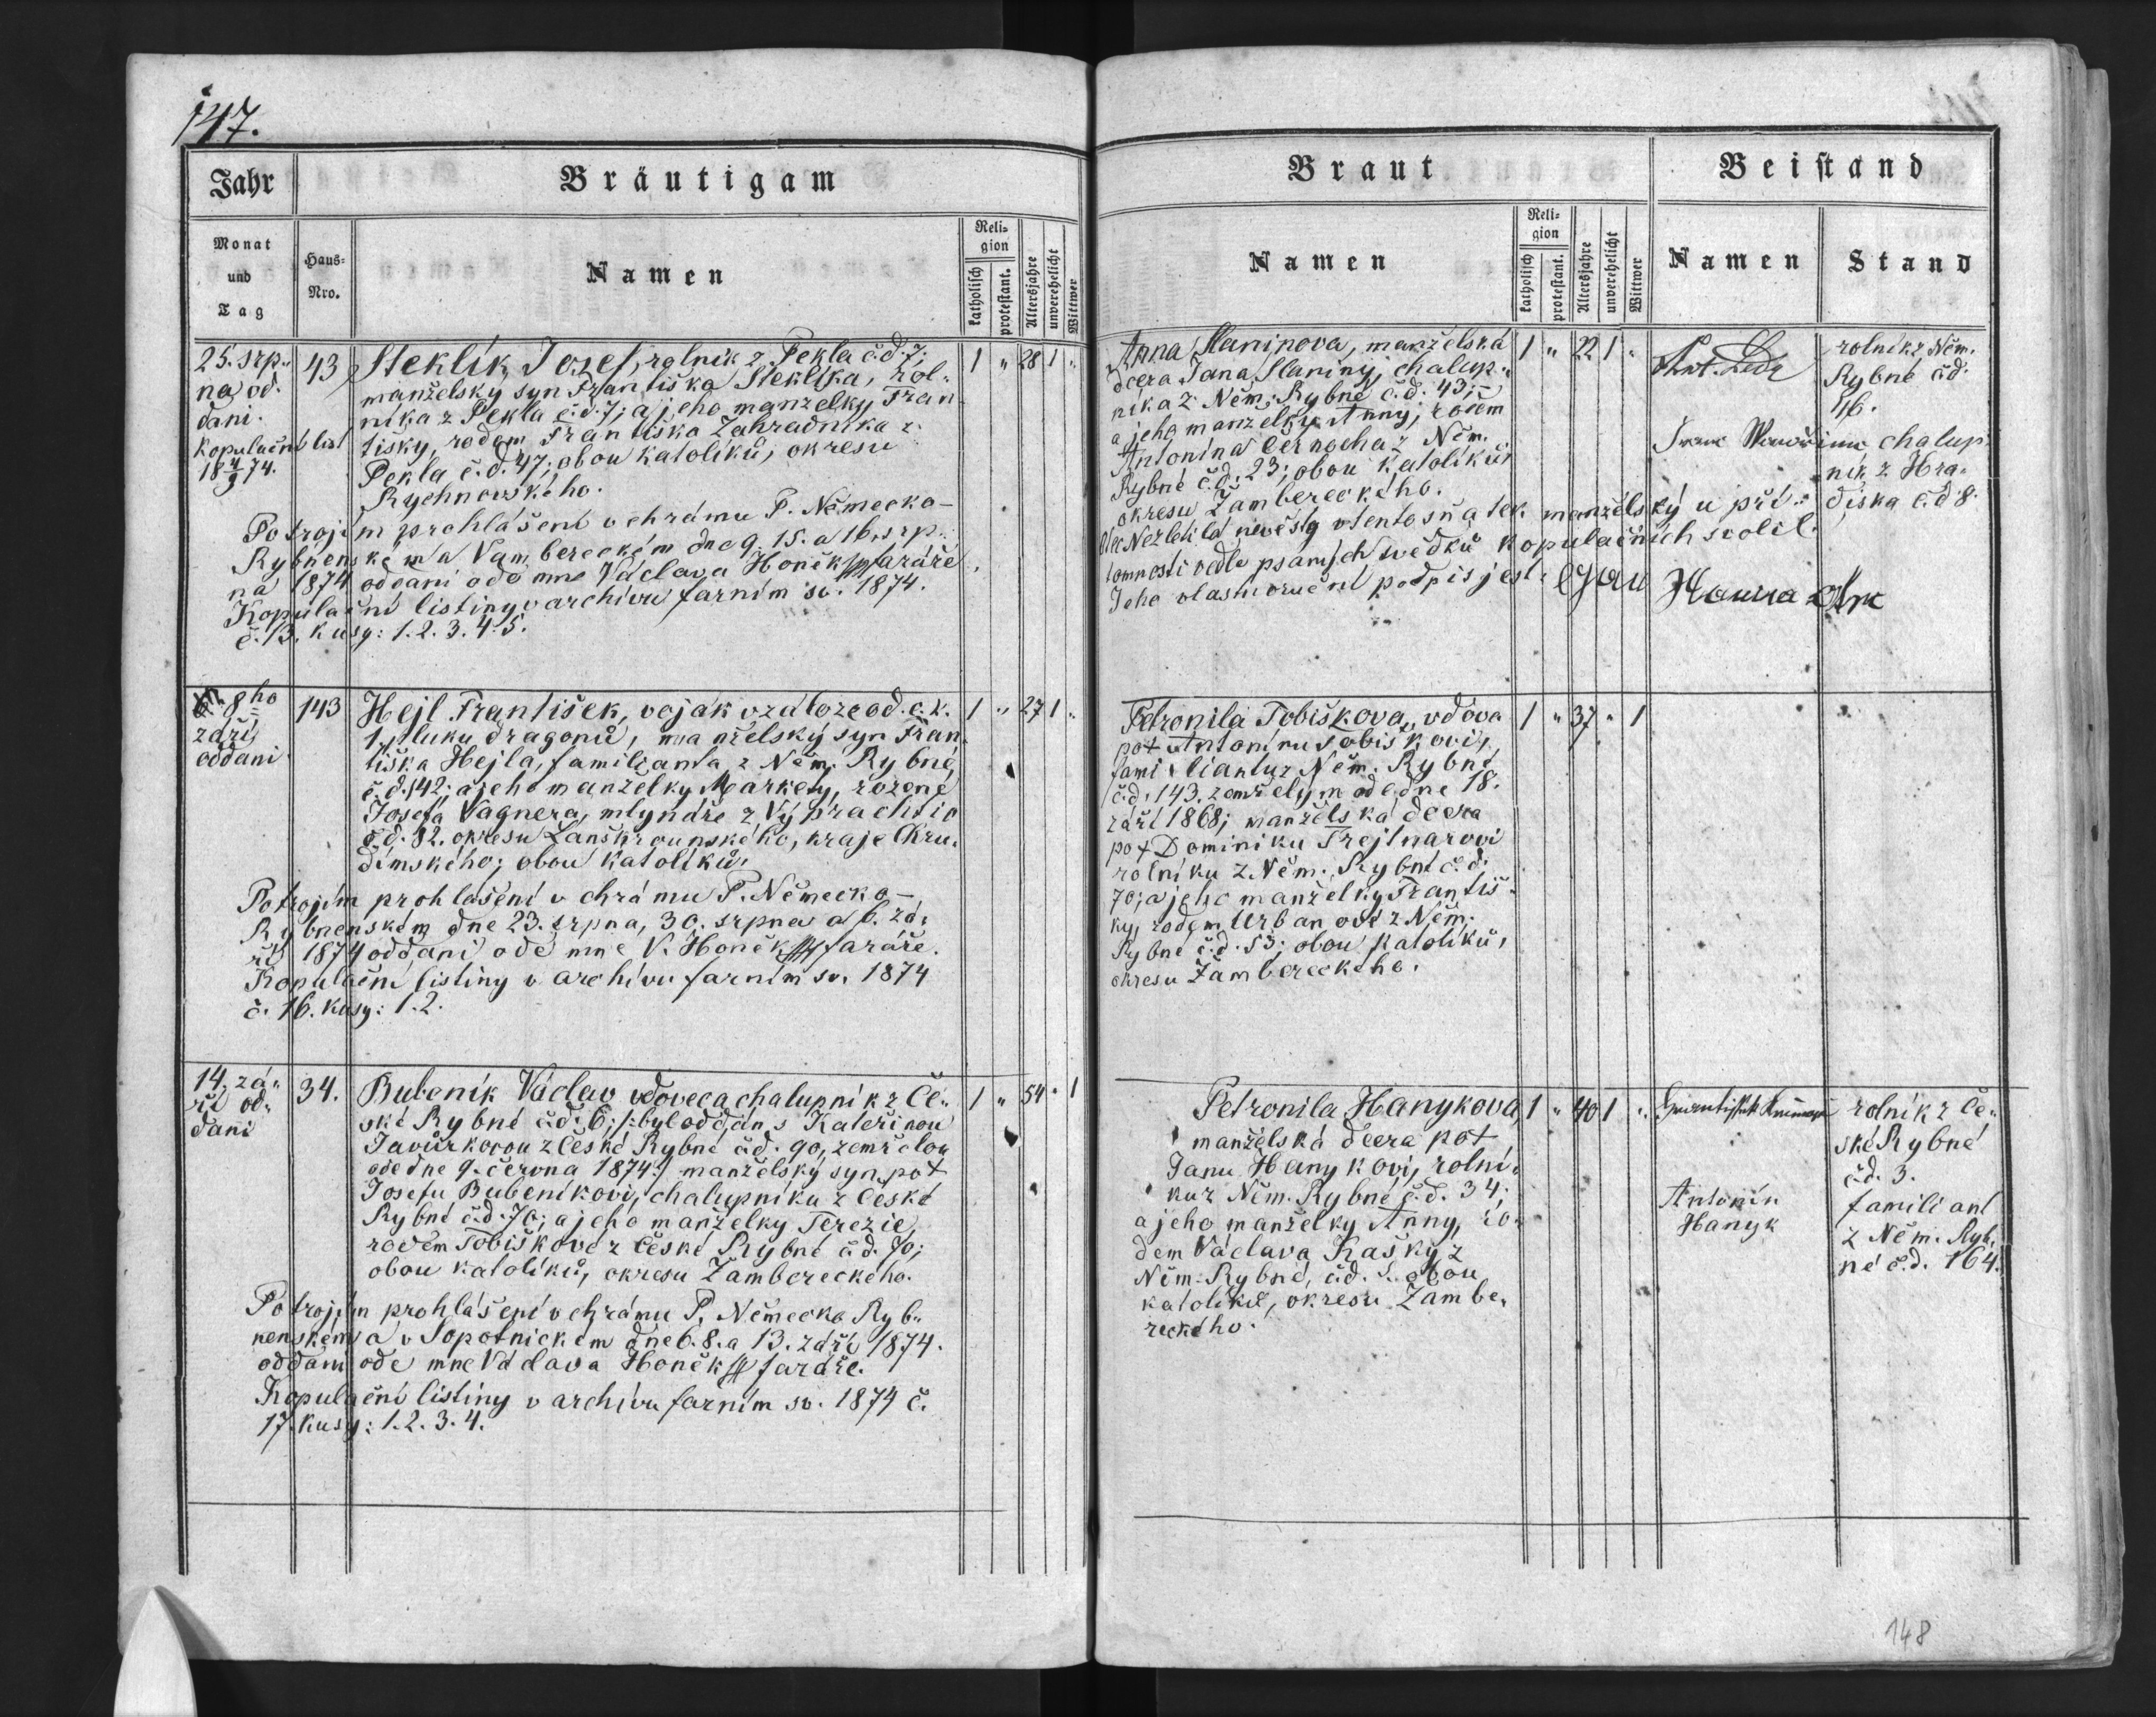 147.
Jahr
Bräutigam
Monat
und
Tag
Haus-
Nro.
Namen
Reli-
gion
katholisch
protestant.
Altersjahre
unverehelicht
Wittwer
25. srp„
na od.
dani.
Kopulační list
18 4/9 74.
43
Steklík Josef, rolník z Pekla č.d. 7;
manželský syn Františka Steklíka, rol„
níka z Pekla č.d. 7; a jeho manželky Fran
tišky, rodem Františka Zahradníka z
Pekla č.d. 47; obou katolíků, okresu
Rychnovského.
1 „ 28 1 „
Potrojím prohlášení v chrámu P. Německo-
Rybnenském a Vambereckém dne 9. 15. a 16. srp„
na 1874 oddáni ode mne Václava Honěk faráře.
Kopulační listiny v archivu farním sv. 1874.
č. 13. kusy: 1. 2. 3. 4. 5.
8ho
září
oddáni
143
Hejl František, voják v záloze od c. k.
1. pluku dragonů, manželský syn Fran„
tiška Hejla, familianta z Něm. Rybné
č.d. 142; a jeho manželky Markety, rozené
Josefa Vagnera, mlynáře z Výprachtic
č.d. 82. okresu Lanškrounského, kraje Chru„
dimského; obou katolíků.
1 „ 27 1 „
Potrojím prohlášení v chrámu P. Německo-
Rybnenském dne 23. srpna, 30. srpna a 6. zá„
ří 1874 oddáni ode mne V. Honěk faráře.
Kopulační listiny v archivu farním sv. 1874
č. 16. kusy: 1. 2.
14. zá„
ří od„
dáni
34.
Bubeník Václav vdovec a chalupník z Če„
ské Rybné č.d. 6; /: byl oddán s Kateřinou
Javůrkovou z České Rybné č.d. 90, zemřelou
ode dne 9. června 1874 :/ manželský syn po †
Josefu Bubeníkovi, chalupníku z České
Rybné č.d. 70; a jeho manželky Terezie,
rodem Tobiškové z České Rybné č.d. 70;
obou katolíků, okresu Žambereckého.
1 „ 54 „ 1
Potrojím prohlášení v chrámu P. Německo Ryb„
nenském a v Sopotnickém dne 6. 8. a 13. září 1874.
oddáni ode mne Václava Honěk faráře.
Kopulační listiny v archivu farním sv. 1874 č.
17. kusy: 1. 2. 3. 4.
Braut
Beistand
Namen
Reli-
gion
katholisch
protestant.
Altersjahre
unverehelicht
Wittwer
Namen
Stand
Anna Slaninova, manželská
dcera Jana Slaniny, chalup„
níka z Něm. Rybné č.d. 43;
a jeho manželky Anny, rodem
Antonína Černocha z Něm.
Rybné č.d. 23; obou katolíků,
okresu Žambereckého.
1 „ 22 1 „
rolník z Něm.
Rybné č.d.
46.
chalup
ník z Hra„
diska č.d. 8.
Otec Nezletilé nevěsty v tento sňatek manželský u pří„
tomnosti vedle psaných svědků kopulačních svolil.
Jeho vlastnoruční podpis jest:
Petronila Tobiškova, vdova
po † Antonínu Tobiškovi,
familiantu z Něm. Rybné
č.d. 143. zemřelým ode dne 18.
září 1868; manželská dcera
po † Dominiku Frejtnarovi
rolníku z Něm. Rybné č.d.
70; a jeho manželky Františ„
ky, rodem Urbanové z Něm.
Rybné č.d. 53; obou katolíků,
okresu Žambereckého.
1 „ 37 „ 1
Petronila Hanykova,
manželská dcera po †
Janu Hanykovi, rolní„
ku z Něm. Rybné č.d. 34;
a jeho manželky Anny, ro„
dem Václava Kašky z
Něm. Rybné, č.d. obou
katolíků, okresu Žambe„
reckého.
1 „ 40 1 „
rolník z Če„
ské Rybné
č.d. 3.
Antonín
Hanyk
familiant
z Něm. Ryb„
né č.d. 164.
148